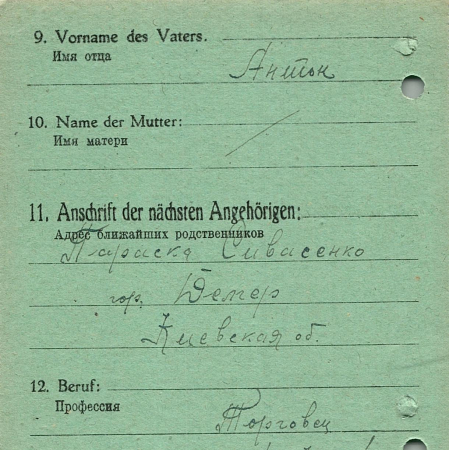 9. Vorname des Vaters.
Имя отца
Антон
10. Name der Mutter:
Имя матери
11. Anschrift der nächsten Angehörigen:
Адрес ближайших родственников
Параска Сивасенко
гор. Демер
Киевская об.
12. Beruf:
Профессия
Торговец